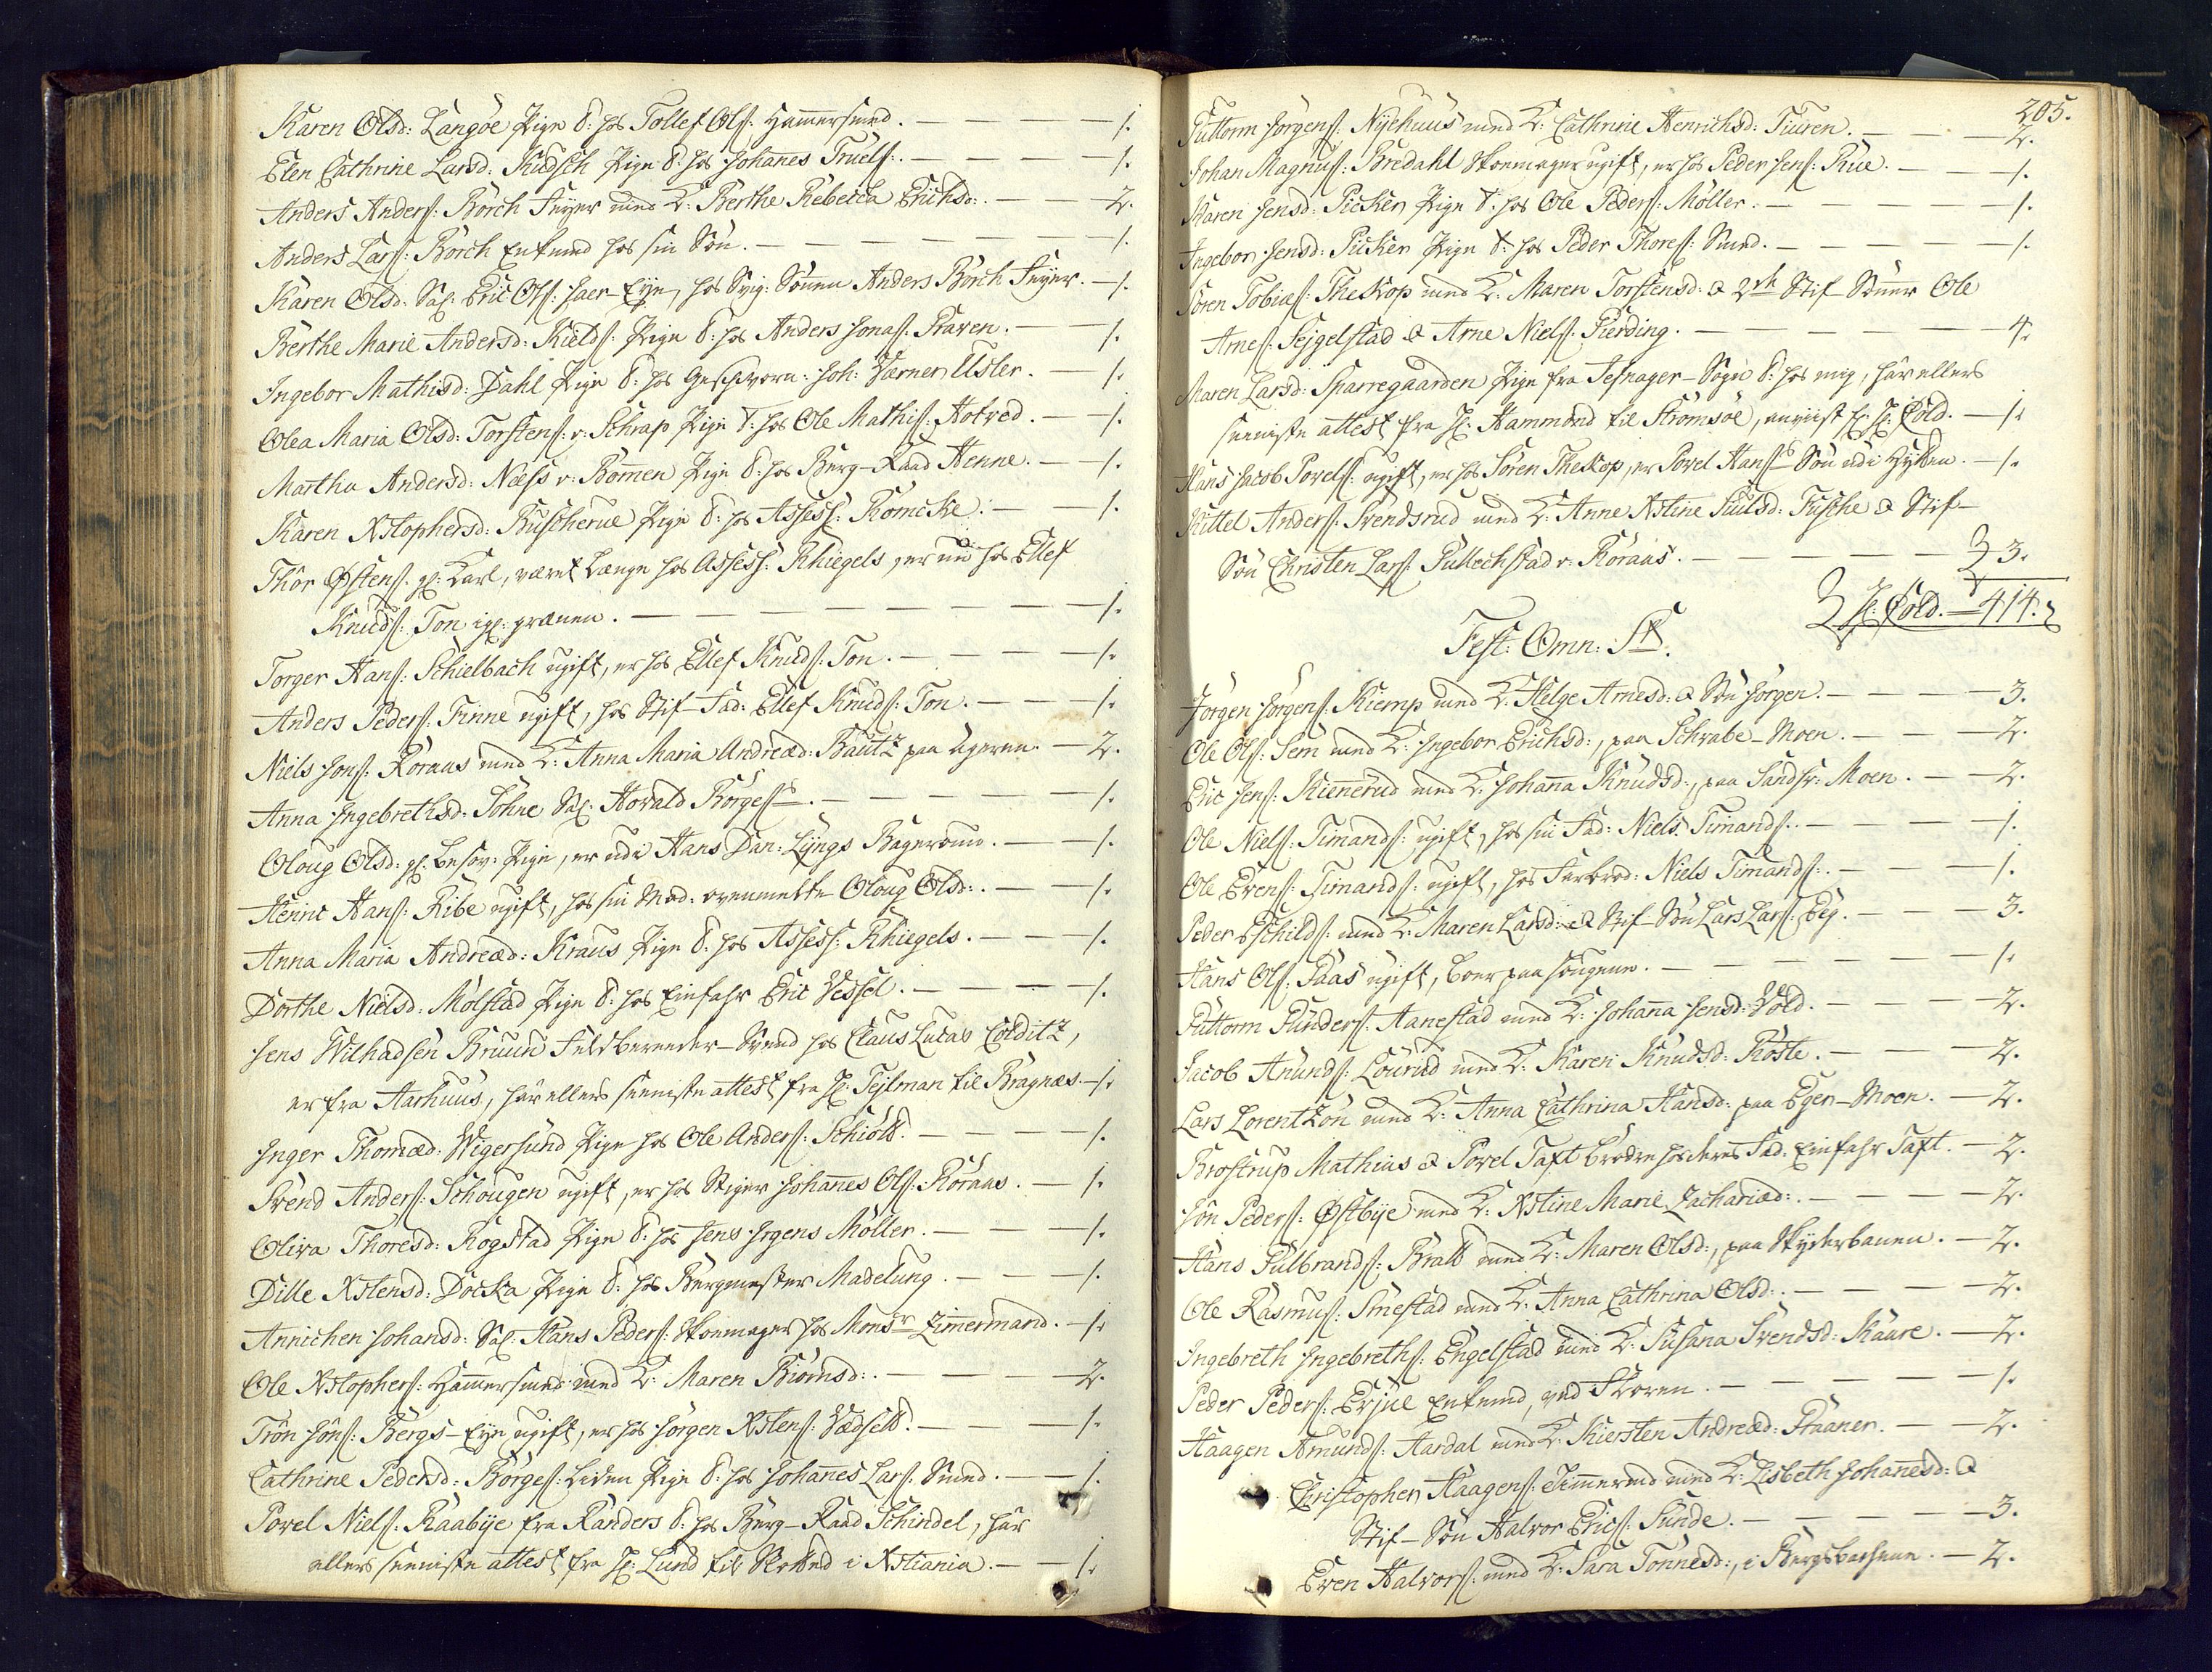 Karen Olsd: Langöe Pige t: hos Tollef Ols: Hammersmed. — 1.
Elen Cathrine Larsd: Kudsch Pige t: hos Johanes Truels: — 1.
Anders Anders: Borch Snyer med K: Berthe Rebecca Erichsd: — 2.
Anders Lars: Borch Enkmand hos sin Sön. — 1.
Karen Olsd: Sal: Eric Ols: Saer-Eye, hos Svig: Sönnen Anders Borch Snyer. — 1.
Berthe Marie Andersd: Kields: Pige t: hos Anders Jonas: Praven. — 1.
Ingebor Mathisd: Dahl Pige t: hos Geschworn: Joh: Værner Usler. — 1.
Olea Maria Olsd: Torstens: v: Schrap Pige t: hos Ole Mathis: Hotved. — 1.
Martha Andersd: Næss v: Bomen Pige t: hos Berg-Raad Henne. — 1.
Karen Xstophersd: Buscherue Pige t: hos Assess: Römcke: — 1.
Thor Östens: gl: Karl, været længe hos Assess: Khiegels, er nu hos Ellef
Knuds: Ton igl: grænen. — 1.
Torger Hans: Schielbach ugift, er hos Ellef Knuds: Ton. — 1.
Anders Peders: Finne ugift, hos Stif-Fad: Ellef Knuds: Ton. — 1.
Niels Jons: Roraas med K: Anna Maria Andreæd: Bautz paa Ageren. — 2.
Anna Ingebrethsd: Söhne Sal: Hovald Borges: — 1.
Oloug Olsd: gl: besov: Pige, er udi Hans Dan: Lÿngs Bagerouen. — 1.
Henric Hans: Ribe ugift, hos sin Mod: ovenmelte Oloug Olsd: — 1.
Anna Maria Andreæd: Kraus Pige t: hos Assess: Khiegels. — 1.
Dorthe Nielsd: Molstad Pige t: hos Einfahr Eric Vessel. — 1.
Jens Wilhadsen Bruun Feldbereeder-Svend hos Claus Lucas Colditz,
er fra Aarhuus, har ellers seeniste attest fra Hr: Tejlman til Bragnæs. — 1.
Inger Thomæd: Wigersund Pige hos Ole Anders: Schiolt. — 1.
Svend Anders: Schougen ugift, er hos Stiger Johanes Ols: Roraas. — 1.
Oliva Thoresd: Rogstad Pige t: hos Jens Jrgens Möller. — 1.
Dille Xstensd: Docka Pige t: hos Bergmester Madelung. — 1.
Annichen Johansd: Sal: Hans Peders: Skomager hos Monsr Zimermand. — 1.
Ole Xstophers: Hammersmed med K: Maren Biornsd: — 2.
Tron Jöns: Bergs-Eye ugift, er hos Jörgen Xstens: Vadsett. — 1.
Cathrine Pedersd: Börges: liden Pige t: hos Johanes Lars: Smed. — 1.
Povel Niels: Raabÿe fra Randers t: hos Berg-Raad Schindel, har
ellers seeniste attest fra Hr: Lund til Slotted i Xstiania. — 1.
205.
Guttorm Jörgens: Nÿehuus med K: Cathrine Henrichsd: Tuuren. — 2.
Johan Magnus: Bredahl Skomager ugift, er hos Peder Jens: Rue. — 1.
Karen Jensd: Picken Pige t: hos Ole Peders: Möller. — 1.
Ingebor Jensd: Picken Pige t: hos Peder Thores: Smed. — 1.
Sören Tobias: Theskop med K: Maren Torstensd: & 2de Stif-Sönner Ole
Arnes: Sejgelstad & Arne Niels: Fierding. — 4.
Maren Larsd: Sparregaarden Pige fra Jefnager-Sogn t: hos mig, har ellers
seeniste attest fra Hr: Hammond til Strömsöe, anviist h: Hr: Cold. — 1.
Hans Jacob Povels: ugift, er hos Sören Theskop, er Povel Hans:s Sön udi Hytten. — 1.
Kittel Anders: Svendsrud med K: Anne Xstine Puulsd: Fusche & Stif-
Sön Christen Lars: Gullechstad v: Röraas. — 3.
Hr: Cold. — 414.
Fest: Omn: SS.
Jörgen Jörgens: Kiemp med K: Helge Arnesd: & Sön Jörgen. — 3.
Ole Ols: Sem med K: Ingebor Erichsd:, paa Schrabe-Moen. — 2.
Eric Jens: Kiennerud med K: Johana Knudsd:, paa Sandsv: Moen. — 2.
Ole Niels: Timands: ugift, hos sin Fad: Niels Timands: — 1.
Ole Evens: Timands: ugift, hos Farbrod: Niels Timands: — 1.
Peder Eschilds: med K: Maren Larsd: & Stif-Sön Lars Lars: Eeg. — 3.
Hans Ols: Paas ugift, boer paa Hougene. — 1.
Guttorm Gunders: Aanestad med K: Johana Jensd: Vold. — 2.
Jacob Anunds: Lourud med K: Karen Knudsd: Röste. — 2.
Lars Lorentzön med K: Anna Cathrina Hansd: paa Eger-Moen. — 2.
Brostrup Mathias & Povel Taft brödre hos deres Fad: Einfahr Taft. — 2.
Jön Peders: Östbÿe med K: Xstine Marie Zachariæd: — 2.
Hans Gulbrands: Bratt med K: Maren Olsd:, paa Skyderbanen. — 2.
Ole Rasmus: Smestad med K: Anna Cathrina Olsd: — 2.
Ingebreth Ingebreths: Engelstad med K: Susana Svendsd: Kaare. — 2.
Peder Peders: Erjue Enkemd, ved Skoren. — 1.
Haagen Amunds: Aardal med K: Kiersten Andreæd: Straaner. — 2.
Christopher Haagens: Timmermd med K: Lisbeth Johanesd: &
Stif-Sön Halvor Erics: Funde. — 3.
Even Halvors: med K: Sara Tonnesd:, i Bergsbachene. — 2.